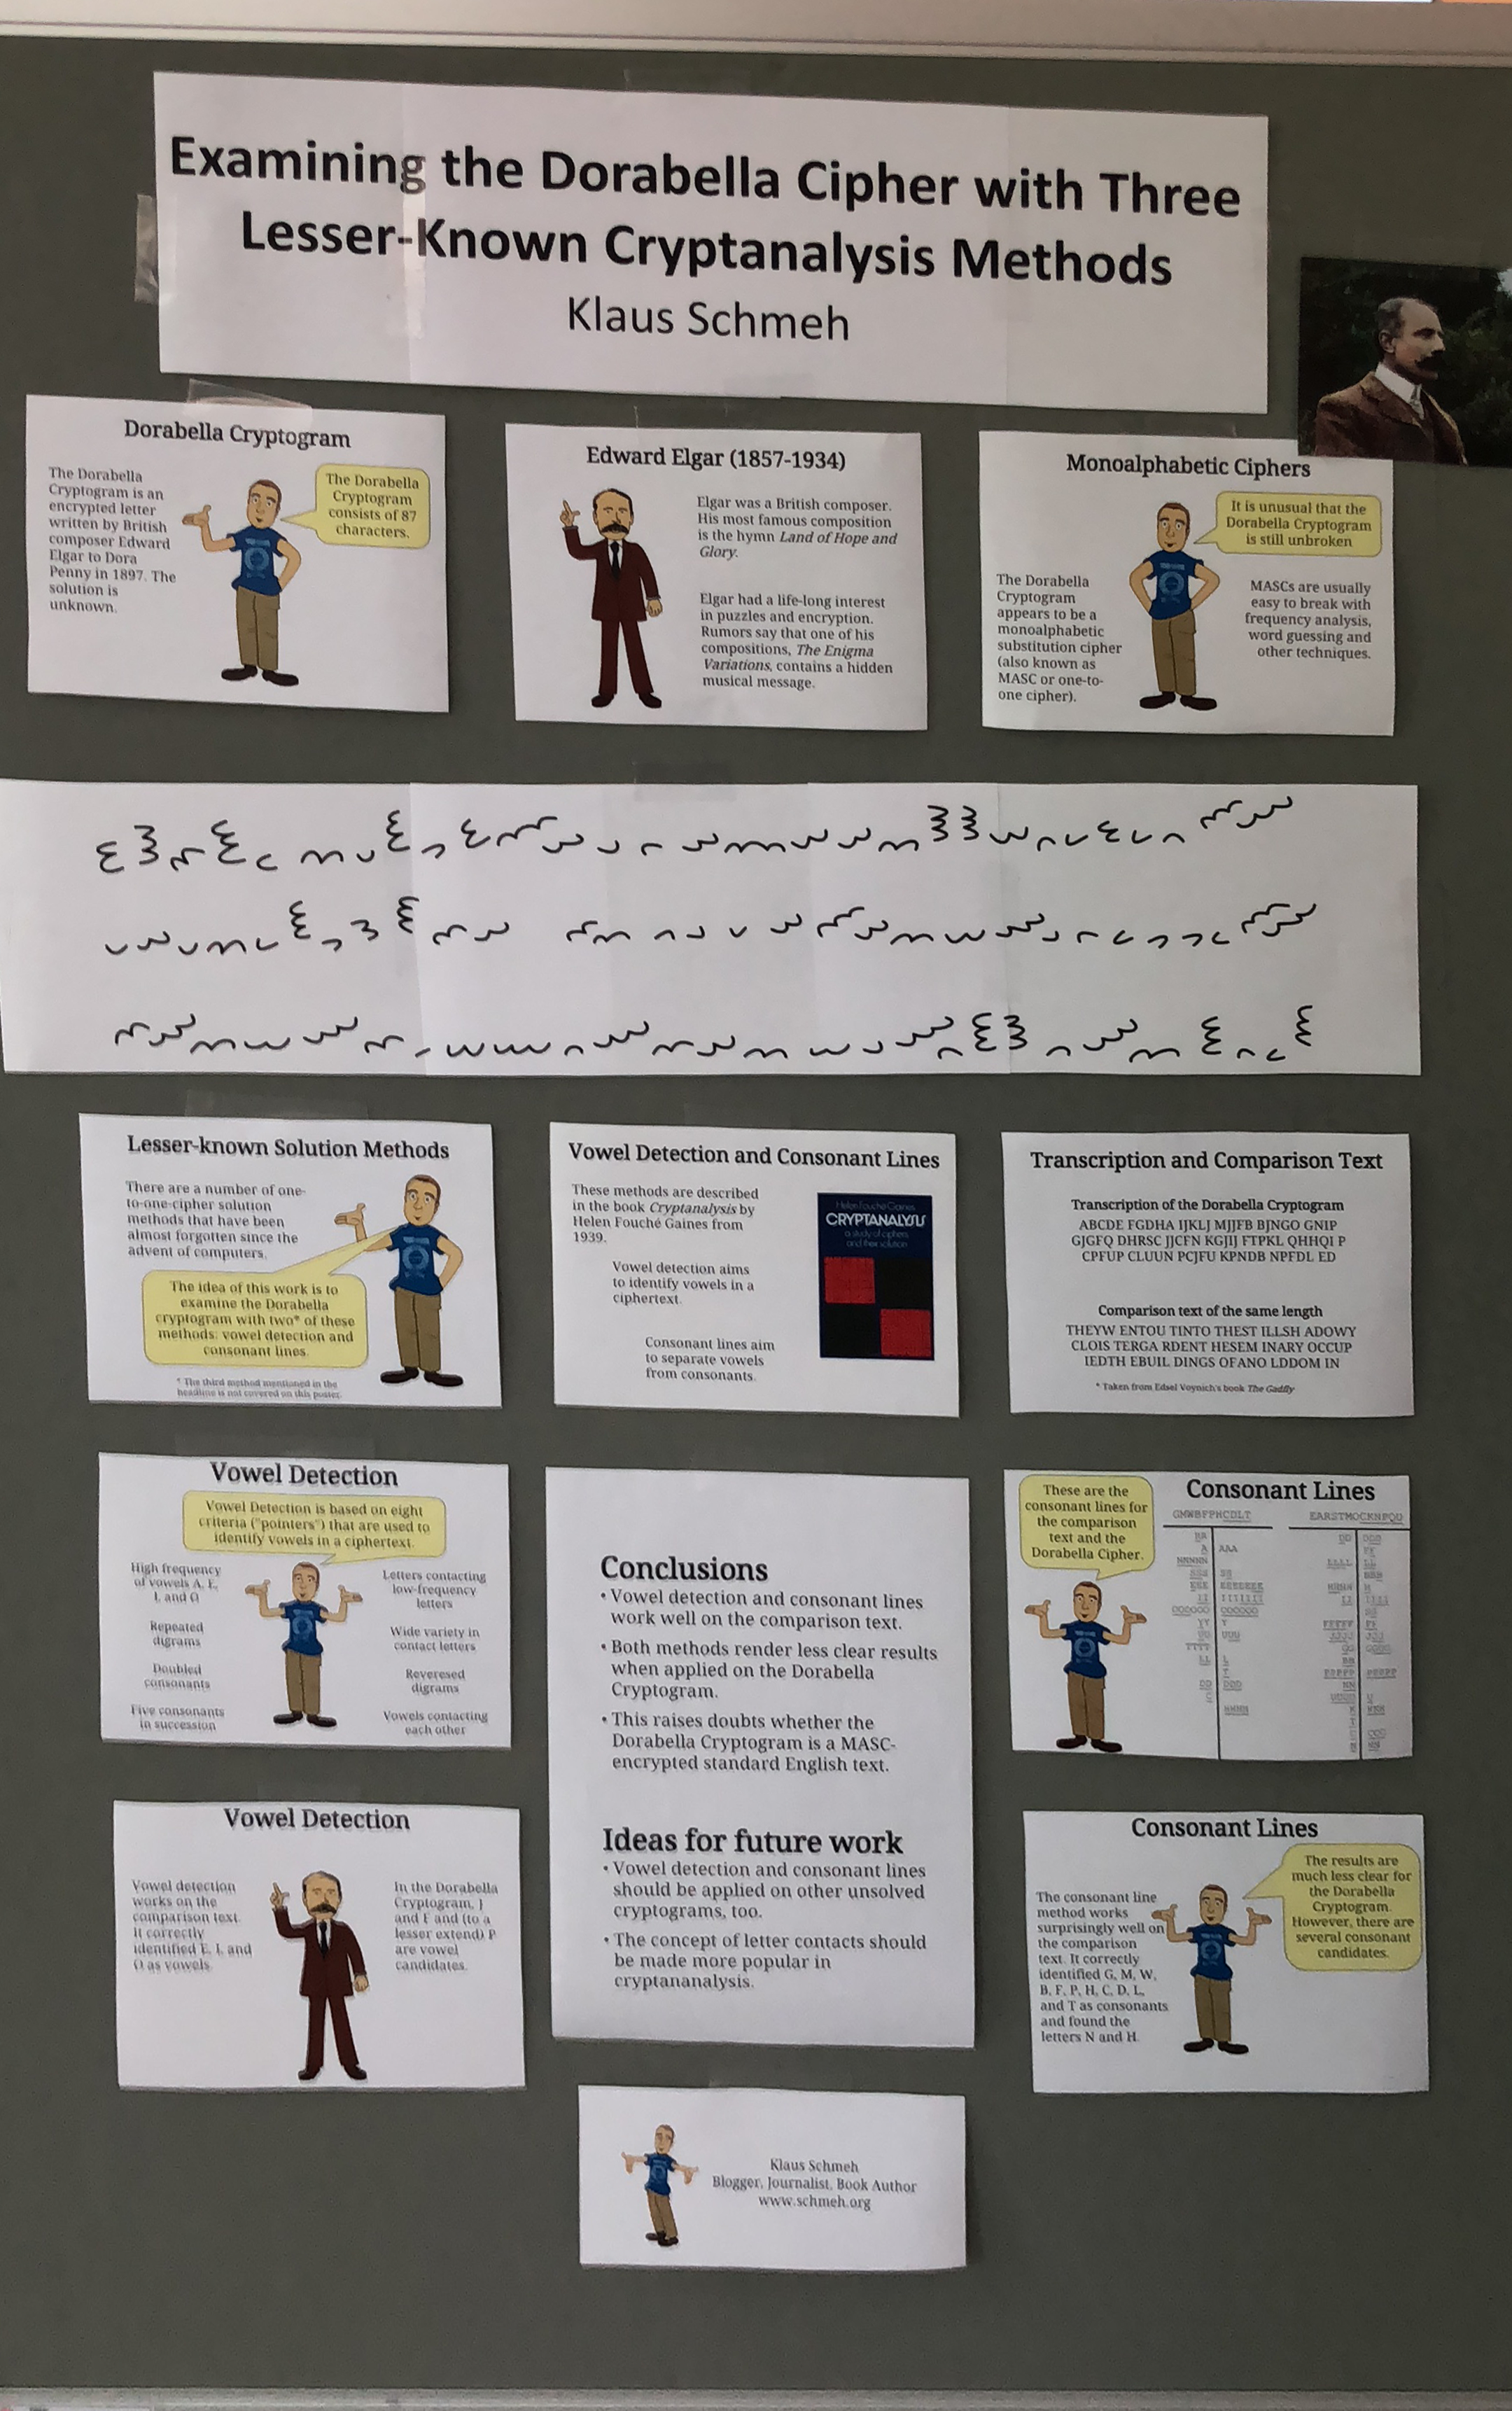 Examining the Dorabella Cipher with Three
Lesser-Known Cryptanalysis Methods
Klaus Schmeh
Dorabella Cryptogram
The Dorabella
Cryptogram is an
encrypted letter
written by British
composer Edward
Elgar to Dora
Penny in 1897. The
solution is
unknown.
The Dorabella
Cryptogram
consists of 87
characters.
Edward Elgar (1857-1934)
Elgar was a British composer.
His most famous composition
is the hymn Land of Hope and
Glory.
Elgar had a life-long interest
in puzzles and encryption.
Rumors say that one of his
compositions, The Enigma
Variations, contains a hidden
musical message.
Monoalphabetic Ciphers
It is unusual that the
Dorabella Cryptogram
is still unbroken
The Dorabella
Cryptogram
appears to be a
monoalphabetic
substitution cipher
(also known as
MASC or one-to-
one cipher).
MASCs are usually
easy to break with
frequency analysis,
word guessing and
other techniques.
Lesser-known Solution Methods
There are a number of one-
to-one-cipher solution
methods that have been
almost forgotten since the
advent of computers.
The idea of this work is to
examine the Dorabella
cryptogram with two* of these
methods: vowel detection and
consonant lines.
* The third method mentioned in the
headline is not covered on this poster.
Vowel Detection and Consonant Lines
These methods are described
in the book Cryptanalysis by
Helen Fouché Gaines from
1939.
Vowel detection aims
to identify vowels in a
ciphertext.
Consonant lines aim
to separate vowels
from consonants.
Helen Fouché Gaines
CRYPTANALYSIS
a study of ciphers
and their solution
Transcription and Comparison Text
Transcription of the Dorabella Cryptogram
ABCDE FGDHA IJKLJ MJJFB BJNGO GNIP
GJGFQ DHRSC JJCFN KGJIJ FTPKL QHHQI P
CPFUP CLUUN PCJFU KPNDB NPFDL ED
Comparison text of the same length
THEYW ENTOU TINTO THEST ILLSH ADOWY
CLOIS TERGA RDENT HESEM INARY OCCUP
IEDTH EBUIL DINGS OFANO LDDOM IN
* Taken from Edsel Voynich's book The Gadfly
Vowel Detection
Vowel Detection is based on eight
criteria ("pointers") that are used to
identify vowels in a ciphertext.
High frequency
of vowels A, E,
I, and O
Repeated
digrams
Doubled
consonants
Five consonants
in succession
Letters contacting
low-frequency
letters
Wide variety in
contact letters
Reveresed
digrams
Vowels contacting
each other
Conclusions
• Vowel detection and consonant lines
work well on the comparison text.
• Both methods render less clear results
when applied on the Dorabella
Cryptogram.
• This raises doubts whether the
Dorabella Cryptogram is a MASC-
encrypted standard English text.
Ideas for future work
• Vowel detection and consonant lines
should be applied on other unsolved
cryptograms, too.
• The concept of letter contacts should
be made more popular in
cryptananalysis.
These are the
consonant lines for
the comparison
text and the
Dorabella Cipher.
Consonant Lines
GMWBFPHCDLT
EARSTMOCKNPQU
Vowel Detection
Vowel detection
works on the
comparison text.
It correctly
identified E, I, and
O as vowels.
In the Dorabella
Cryptogram, J
and F and (to a
lesser extend) P
are vowel
candidates.
Consonant Lines
The consonant line
method works
surprisingly well on
the comparison
text. It correctly
identified G, M, W,
B, F, P, H, C, D, L,
and T as consonants
and found the
letters N and H.
The results are
much less clear for
the Dorabella
Cryptogram.
However, there are
several consonant
candidates.
Klaus Schmeh
Blogger, Journalist, Book Author
www.schmeh.org